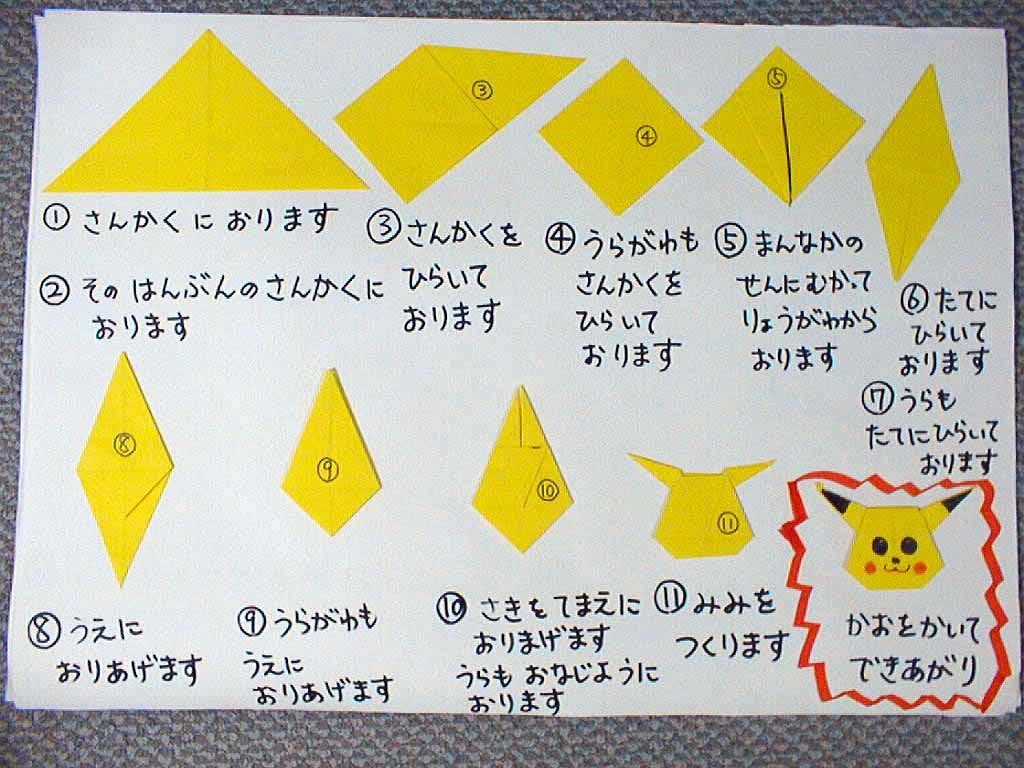 ③
④
⑤
① さんかくに おります
② その はんぶんのさんかくに
おります
③ さんかくを
ひらいて
おります
④ うらがわも
さんかくを
ひらいて
おります
⑤ まんなかの
せんに むかって
りょうがわから
おります
⑥ たてに
ひらいて
おります
⑦ うらも
たてにひらいて
おります
⑧
⑨
⑩
⑪
⑧ うえに
おりあげます
⑨ うらがわも
うえに
おりあげます
⑩ さきを てまえに
おりまげます
うらも おなじように
おります
⑪ みみを
つくります
かおをかいて
できあがり